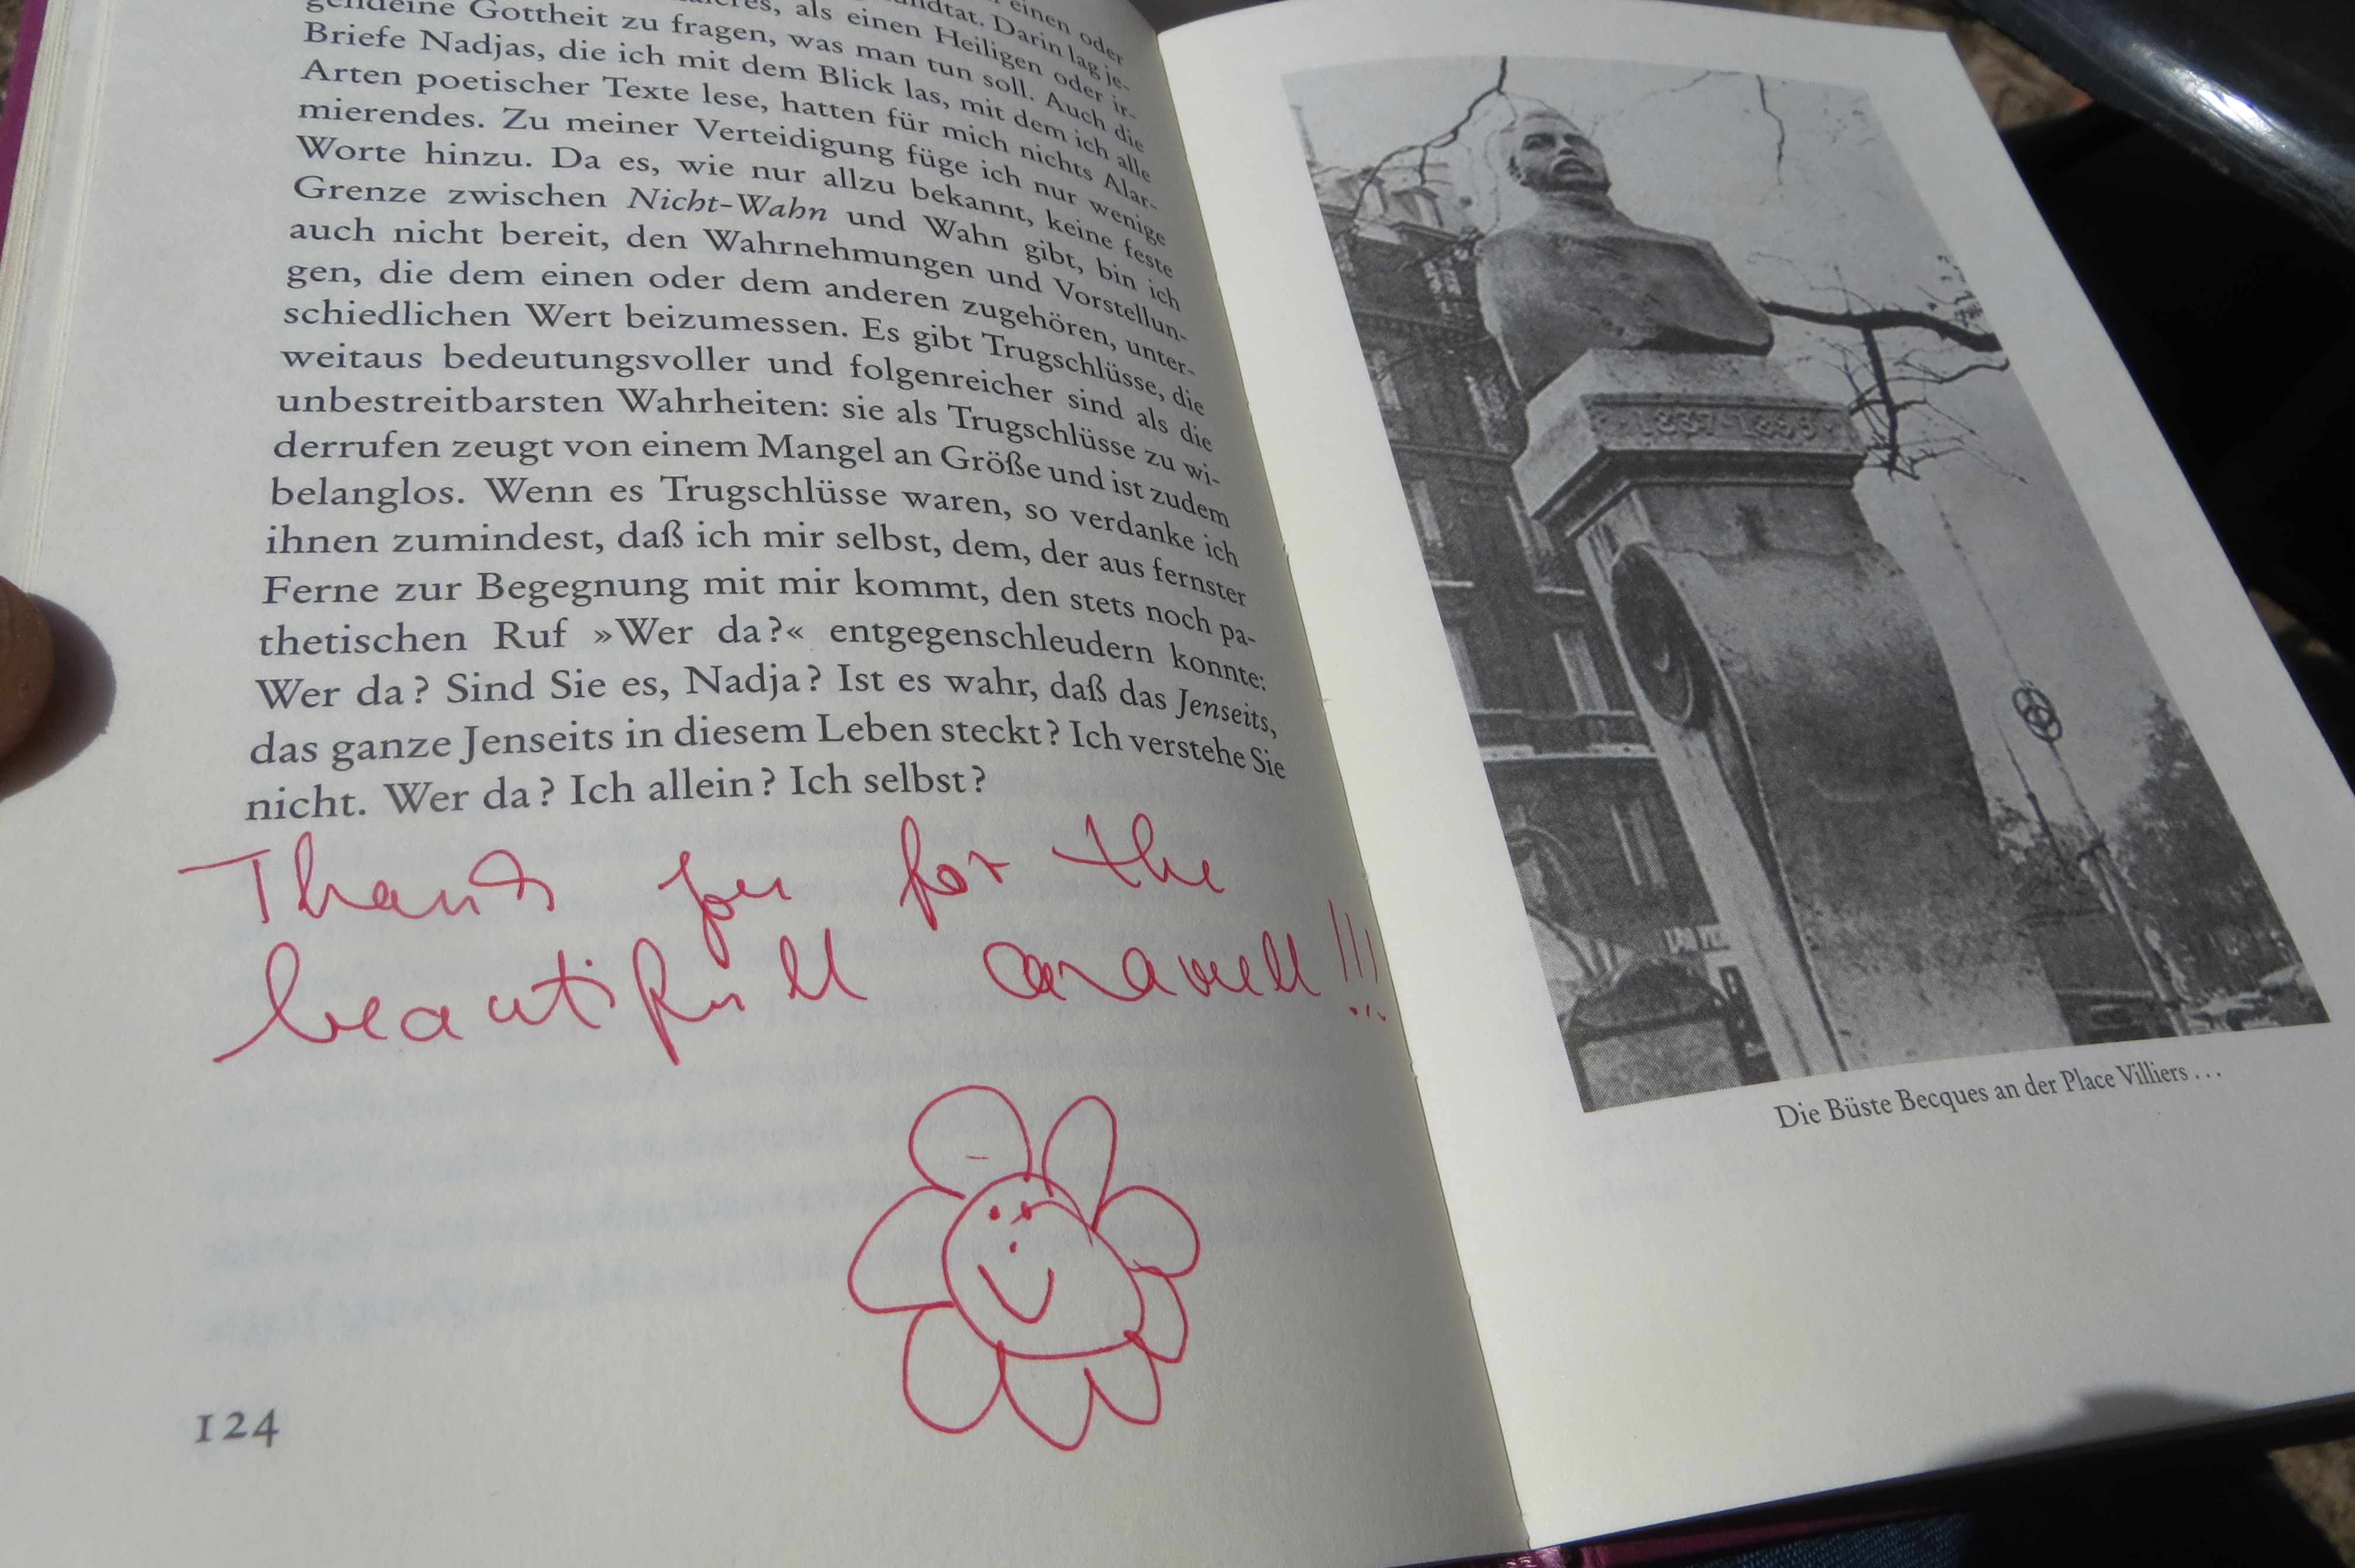 einen oder
als einen Heiligen oder ir-
gendeine Gottheit zu fragen, was man tun soll. Auch die
Briefe Nadjas, die ich mit dem Blick las, mit dem ich alle
Arten poetischer Texte lese, hatten für mich nichts Alar-
mierendes. Zu meiner Verteidigung füge ich nur wenige
Worte hinzu. Da es, wie nur allzu bekannt, keine feste
Grenze zwischen Nicht-Wahn und Wahn gibt, bin ich
auch nicht bereit, den Wahrnehmungen und Vorstellun-
gen, die dem einen oder dem anderen zugehören, unter-
schiedlichen Wert beizumessen. Es gibt Trugschlüsse, die
weitaus bedeutungsvoller und folgenreicher sind als die
unbestreitbarsten Wahrheiten: sie als Trugschlüsse zu wi-
derrufen zeugt von einem Mangel an Größe und ist zudem
belanglos. Wenn es Trugschlüsse waren, so verdanke ich
ihnen zumindest, daß ich mir selbst, dem, der aus fernster
Ferne zur Begegnung mit mir kommt, den stets noch pa-
thetischen Ruf »Wer da?« entgegenschleudern konnte:
Wer da? Sind Sie es, Nadja? Ist es wahr, daß das Jenseits,
das ganze Jenseits in diesem Leben steckt? Ich verstehe Sie
nicht. Wer da? Ich allein? Ich selbst?
Thank you for the
beautifull caravell!!!
124
1837 1899
Die Büste Becques an der Place Villiers ...